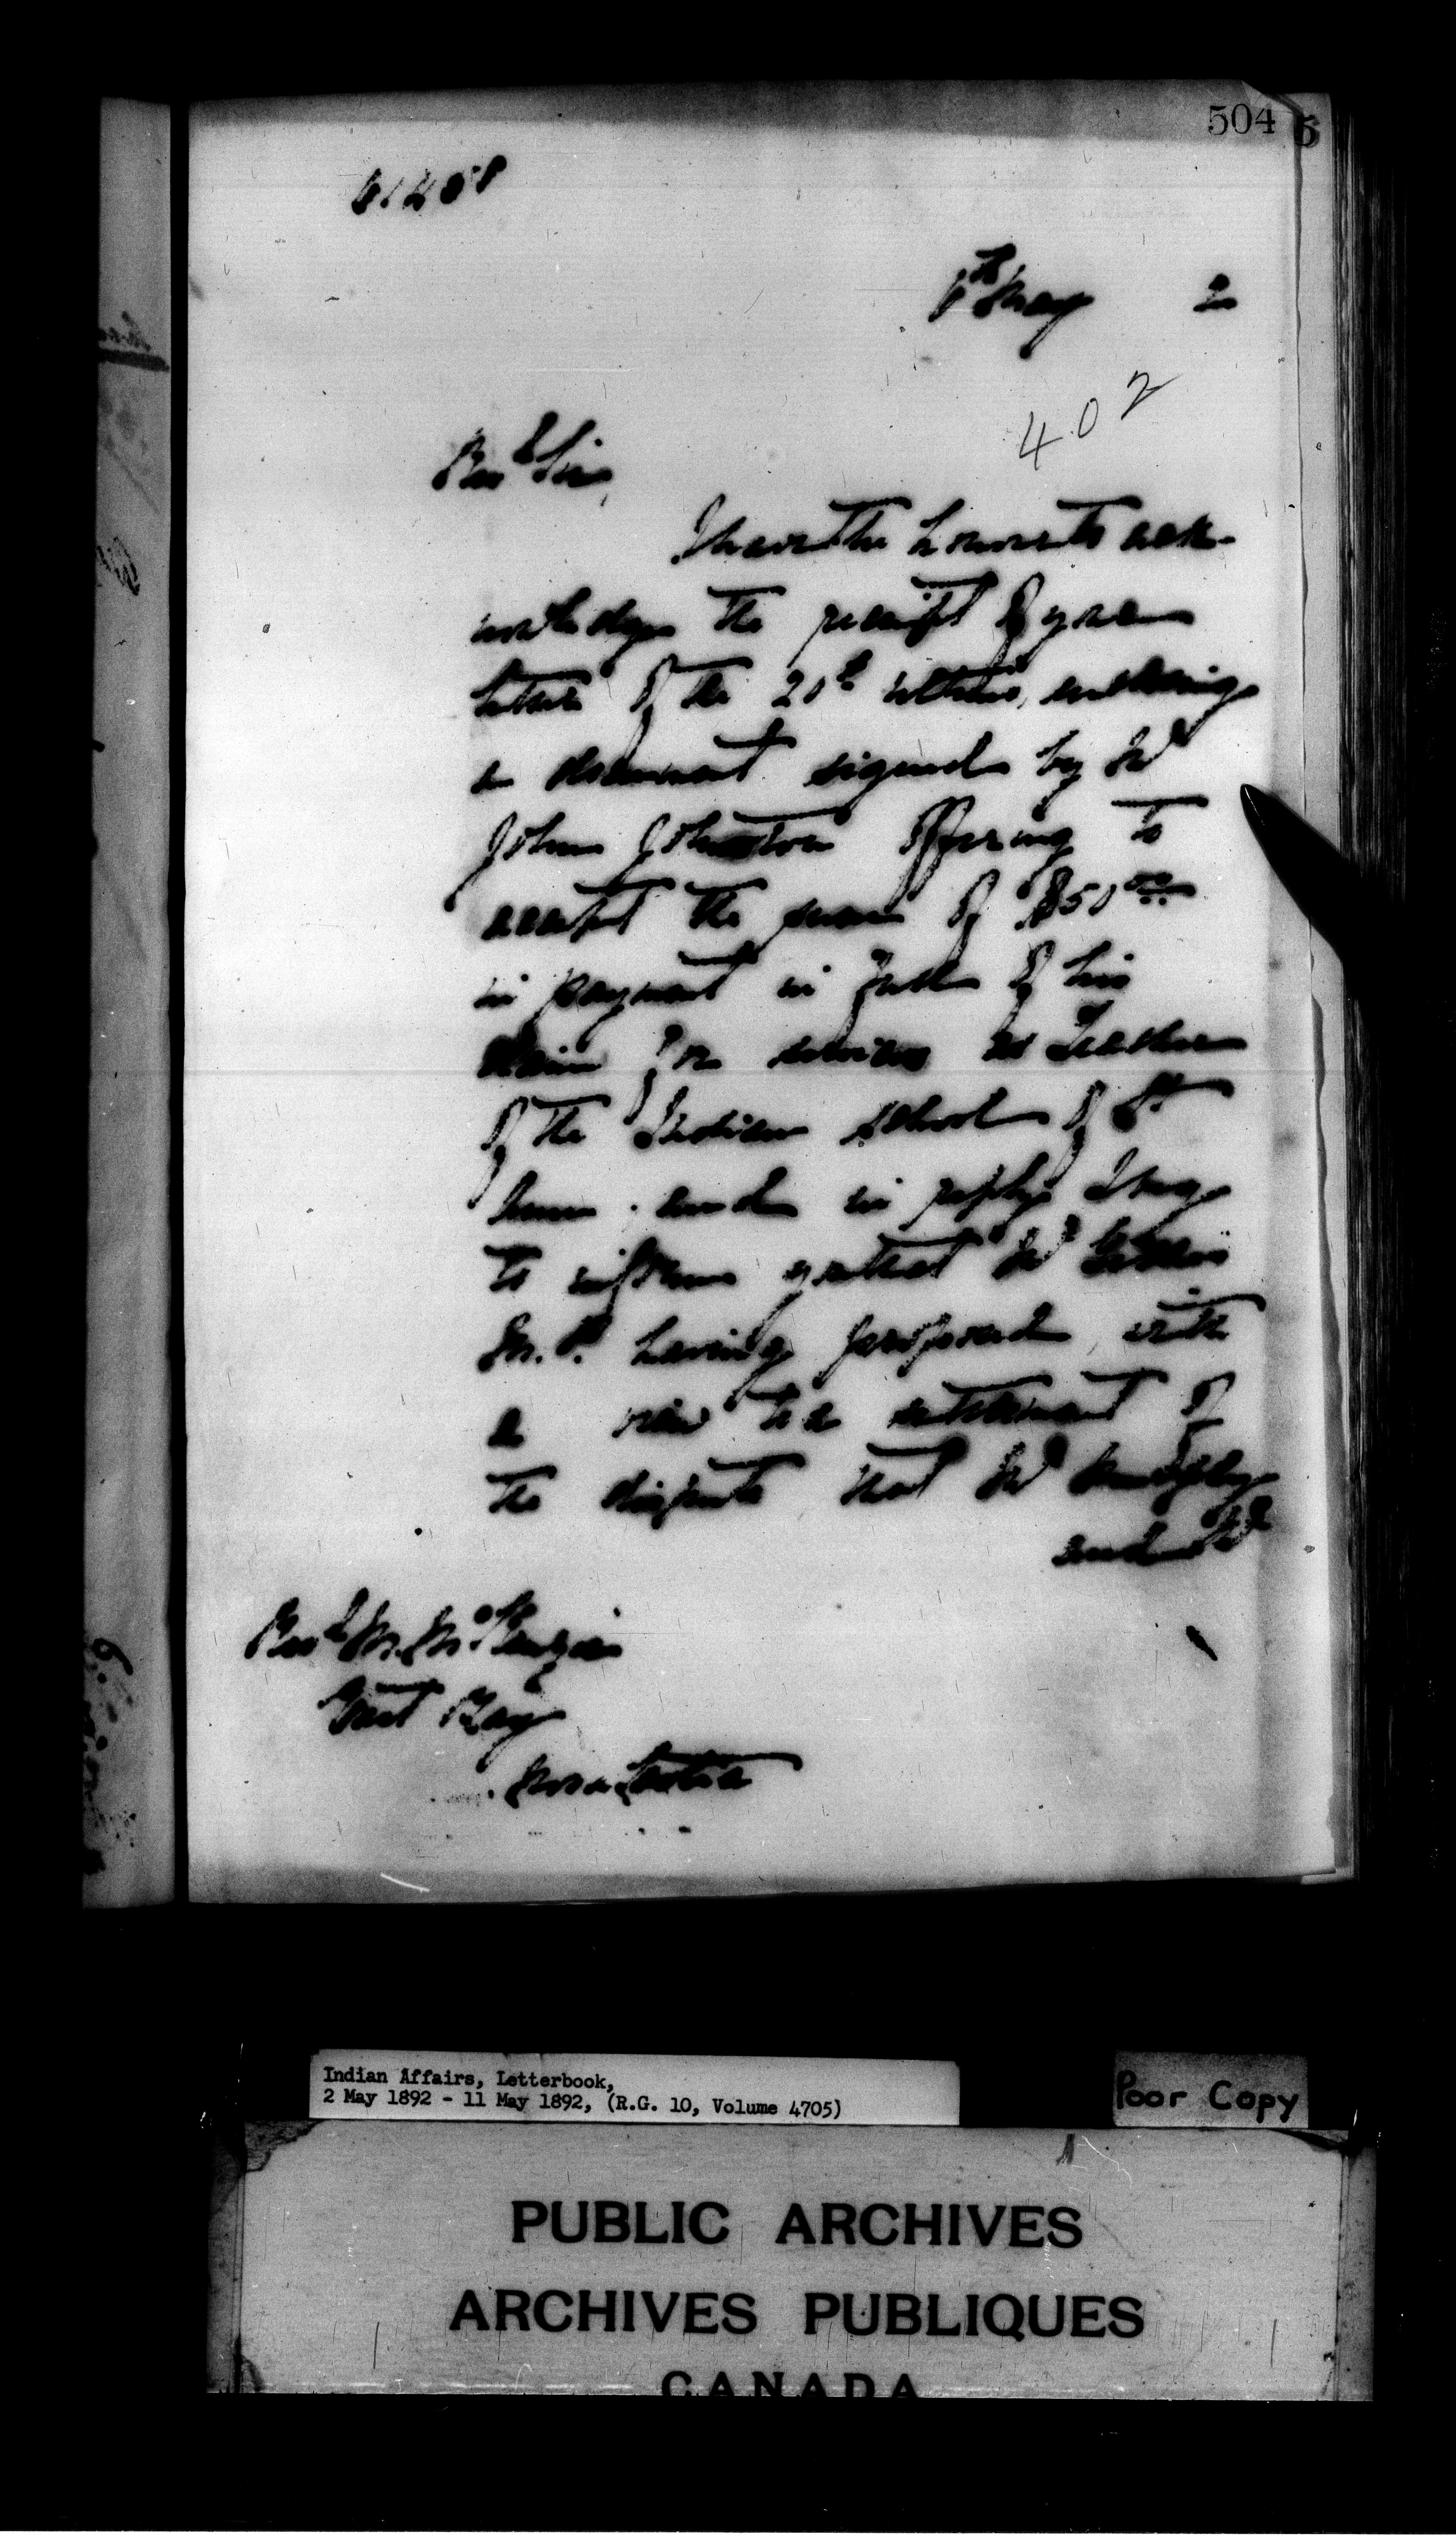 504
6th May 2
402
Revd Sir,
I have the honor to ack-
nowledge the receipt of your
letter of the 20th ultimo, enclosing
a document signed by Mr
John Johnston offering to
accept the sum of $50.00
in payment in full of his
claim for services as Teacher
of the Indian school of St
and in reply I beg
to inform you that Mr
M.P. having proposed with
a view to a settlement of
the dispute that Mr
and Mr
Revd M. McKenzie
East Bay
Nova Scotia
Indian Affairs, Letterbook,
2 May 1892 - 11 May 1892, (R.G. 10, Volume 4705)
Poor Copy
PUBLIC ARCHIVES
ARCHIVES PUBLIQUES
CANADA